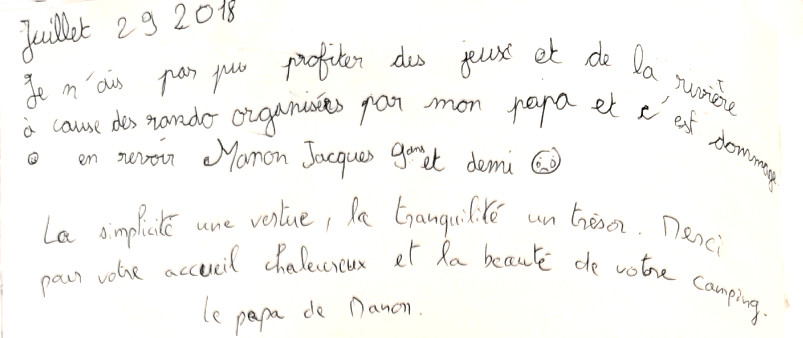 Juillet 29 2018
Je n'ais pas pu profiter des jeux et de la rivière
à cause des rando organisées par mon papa et c'est dommage
☹ en revoir Manon Jacques 9 ans et demi ☹
La simplicité une vertue, la tranquilité un trésor. Merci
pour votre accueil chaleureux et la beauté de votre camping.
le papa de Manon.